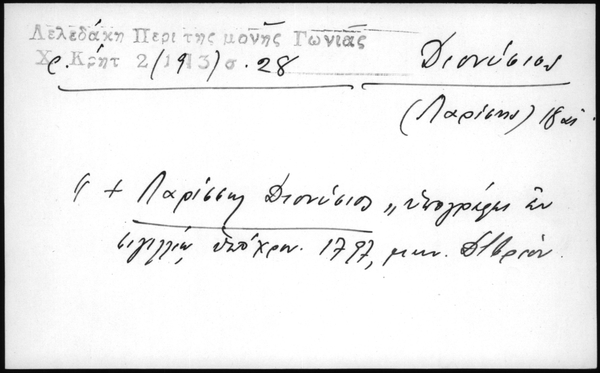 Λελεδάκη Περι της μονῆς Γωνιᾶς
Χρ. Κρήτ 2 (1913) σ. 28
Διονύσιος
(Λαρίσης) 18 αἰ.
" + Λαρίσσης Διονύσιος „ ὑπογράφει ἐν
σιγιλλίῳ ὑπὸ χρον. 1797, μην.